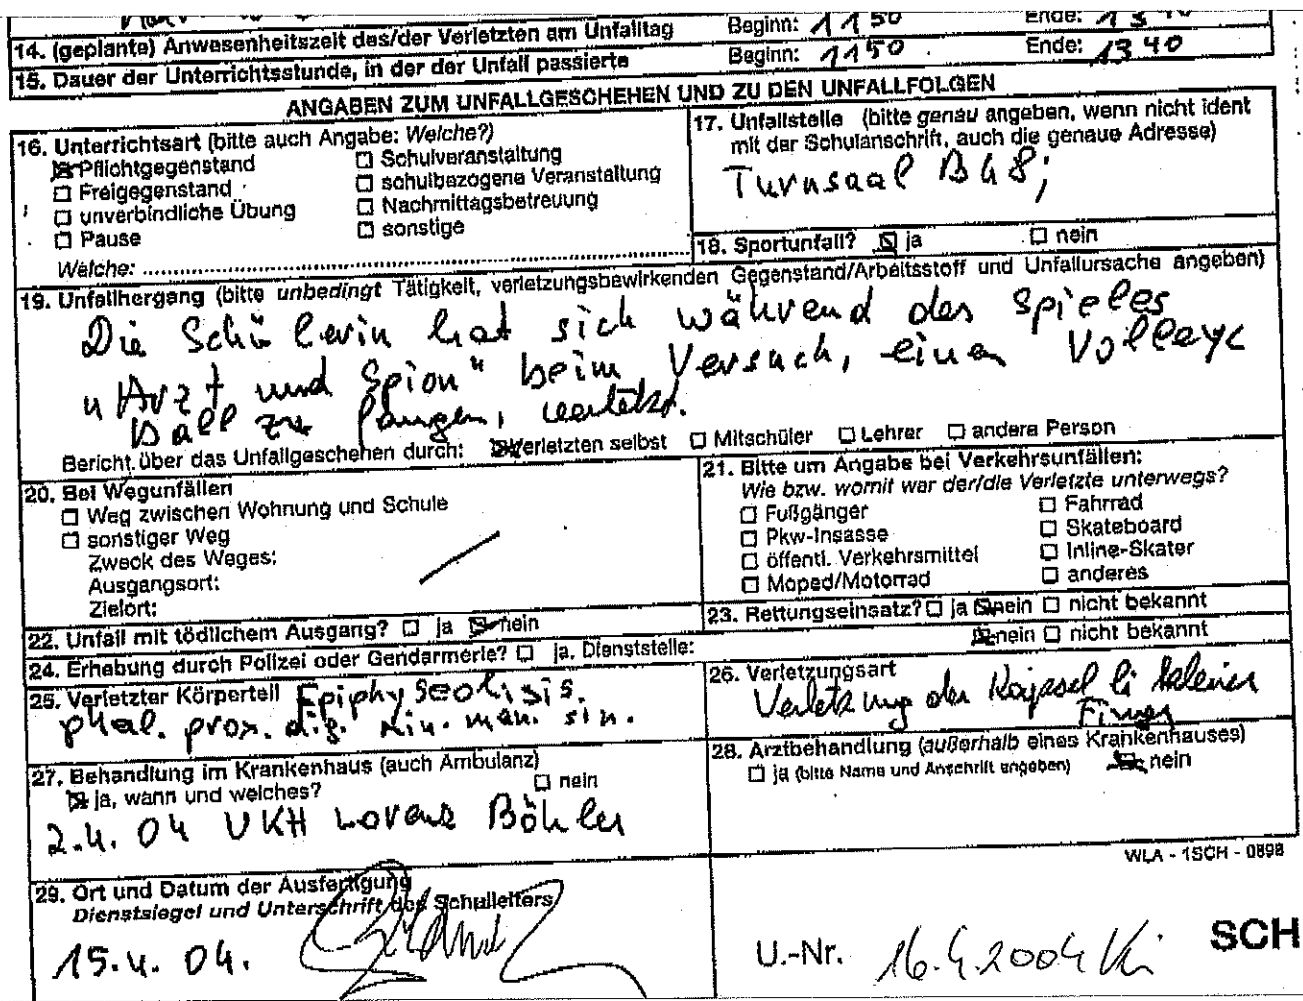 Beginn: 1150 Ende: 13
14. (geplante) Anwesenheitszeit des/der Verletzten am Unfalltag
15. Dauer der Unterrichtsstunde, in der der Unfall passierte Beginn: 1150 Ende: 1340
ANGABEN ZUM UNFALLGESCHEHEN UND ZU DEN UNFALLFOLGEN
16. Unterrichtsart (bitte auch Angabe: Welche?)
Pflichtgegenstand
Freigegenstand
unverbindliche Übung
Pause
Schulveranstaltung
schulbezogene Veranstaltung
Nachmittagsbetreuung
sonstige
Welche:
17. Unfallstelle (bitte genau angeben, wenn nicht ident
mit der Schulanschrift, auch die genaue Adresse)
Turnsaal
18. Sportunfall? ja nein
19. Unfallhergang (bitte unbedingt Tätigkeit, verletzungsbewirkenden Gegenstand/Arbeitsstoff und Unfallursache angeben)
Die Schülerin hat sich während des Spieles
"Arzt und Spion" beim Versuch, einen
Ball zu fangen, verletzt.
Bericht über das Unfallgeschehen durch: Verletzten selbst Mitschüler Lehrer andere Person
20. Bei Wegunfällen
Weg zwischen Wohnung und Schule
sonstiger Weg
Zweck des Weges:
Ausgangsort:
Zielort:
21. Bitte um Angabe bei Verkehrsunfällen:
Wie bzw. womit war der/die Verletzte unterwegs?
Fußgänger
Pkw-Insasse
öffentl. Verkehrsmittel
Moped/Motorrad
Fahrrad
Skateboard
Inline-Skater
anderes
22. Unfall mit tödlichem Ausgang? ja nein
23. Rettungseinsatz? ja nein nicht bekannt
24. Erhebung durch Polizei oder Gendarmerie? ja, Dienststelle: nein nicht bekannt
25. Verletzter Körperteil Epiphyseolisis.
phal. prox. dig. min. man. sin.
26. Verletzungsart
Verletzung der Kapsel li kleiner
Finger
27. Behandlung im Krankenhaus (auch Ambulanz)
ja, wann und welches? nein
2.4.04 UKH Lorenz Böhler
28. Arztbehandlung (außerhalb eines Krankenhauses)
ja (bitte Name und Anschrift angeben) nein
WLA - 1SCH - 0898
29. Ort und Datum der Ausfertigung
Dienstsiegel und Unterschrift des Schulleiters
15.4.04.
U.-Nr. 16.4.2004 SCH